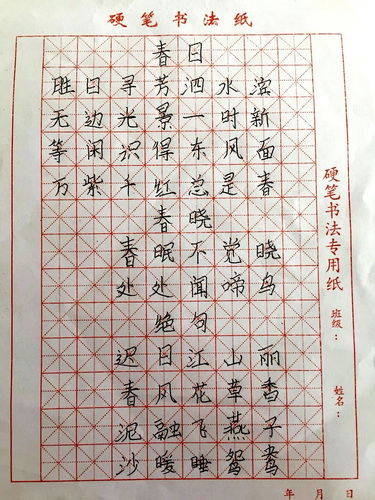 硬笔书法纸
春日
胜日寻芳泗水滨
无边光景一时新
等闲识得东风面
万紫千红总是春
春晓
春眠不觉晓
处处闻啼鸟
绝句
迟日江山丽
春风花草香
泥融飞燕子
沙暖睡鸳鸯
硬笔书法专用纸
班级：
姓名：
年 月 日